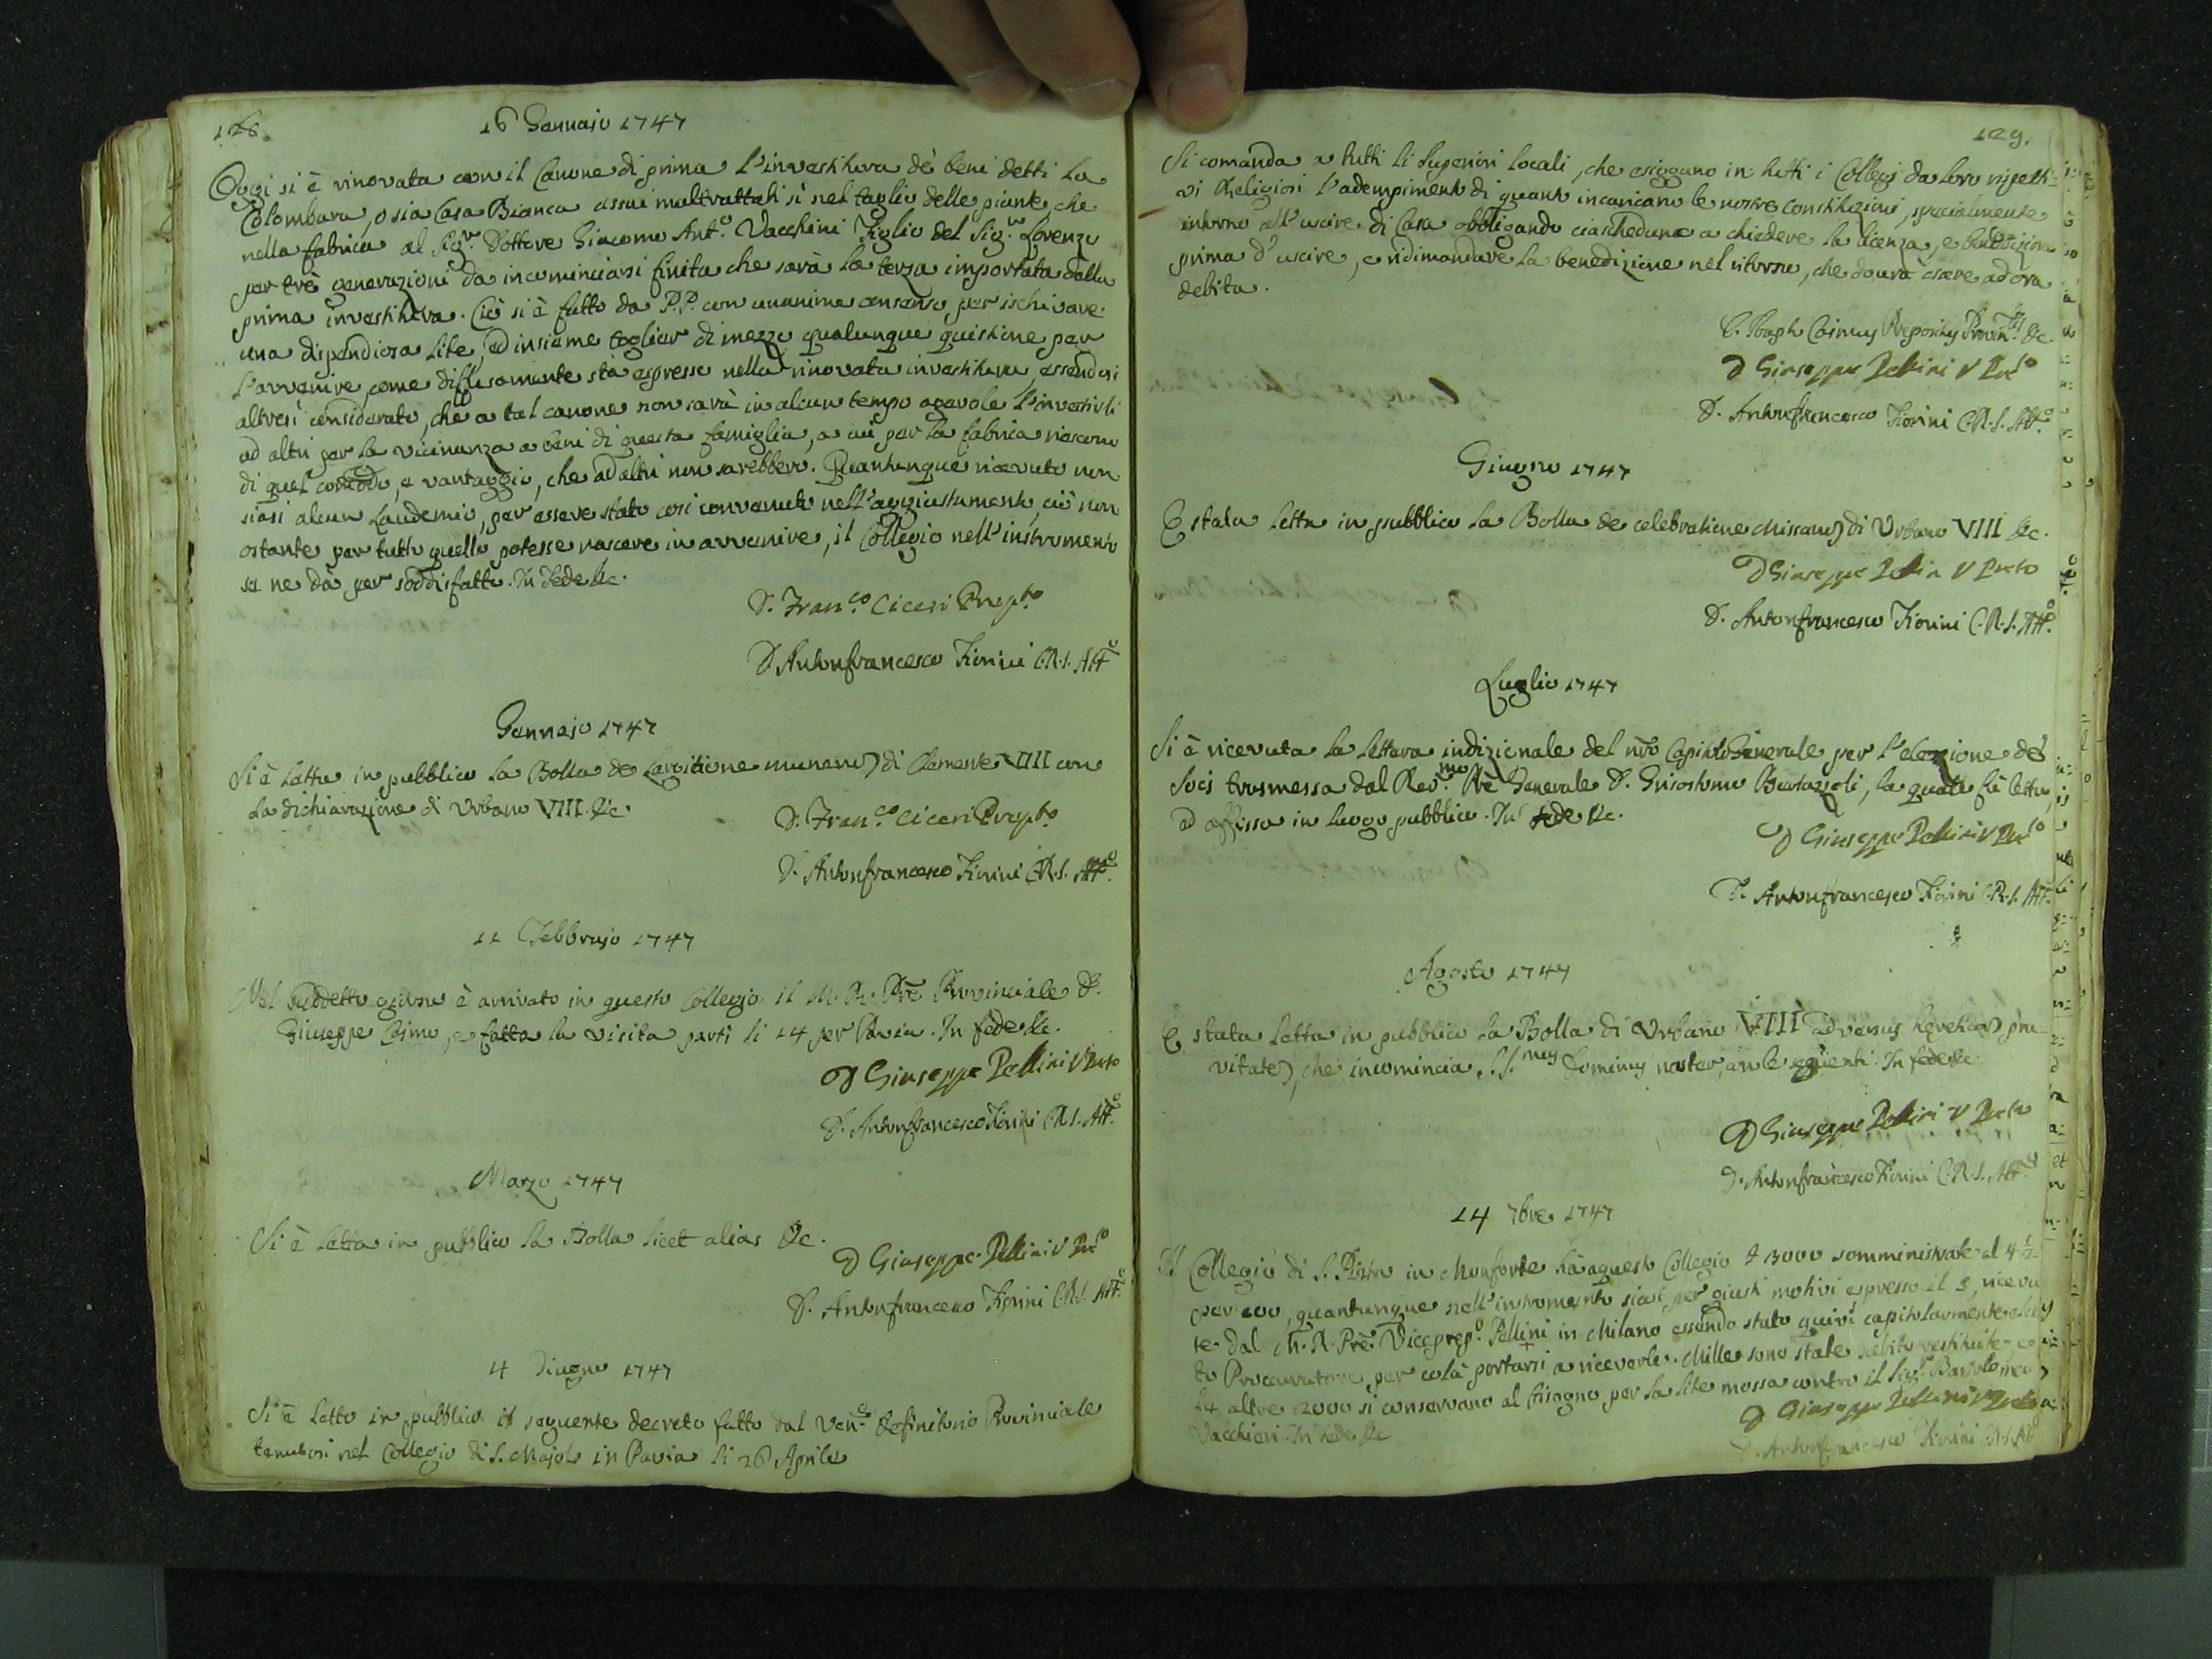 128.
16 Gennajo 1747
Oggi si è rinovata con il Canone di prima l'investitura de' beni detti la
Colombara, o sia Casa Bianca assai maltrattati sì nel taglio delle piante che
nella fabrica al Sig.r Dottore Giacomo Ant.o Vacchini Figlio del Sig.r Lorenzo
per trè generazioni da incominciarsi finita che sarà la terza importata dalla
prima investitura. Ciò si è fatto da P.P. con unanime consenso, per ischivare
una dispendiosa lite, ed insieme toglier di mezzo qualunque quistione per
l'avvenire, come diffusamente stà espresso nella rinovata investitura, essendosi
altresì considerato, che a tal canone non sarà in alcun tempo agevole l'investirli
ad altri per la vicinanza a beni di questa famiglia, a cui per la fabrica riescono
di quel comodo, e vantaggio, che ad altri non sarebbero. Quantunque ricevuto non
siasi alcun Laudemio, per essere stato così convenuto nell'aggiustamento, ciò non
ostante per tutto quello potesse nascere in avvenire, il Collegio nell'instromento
se ne dà per soddisfatto. In Fede &c.
D. Fran.co Ciceri Prep.to
D. Antonfrancesco Fiorini C.R.S. Att.o
Gennajo 1747
Si è letta in pubblico la Bolla de Largitione munerũ di Clemente VIII con
la dichiarazione di Urbano VIII. &c.
D. Fran.co Ciceri Prep.to
D. Antonfrancesco Fiorini C.R.S. Att.o
11 Febbrajo 1747
Nel suddetto giorno è arrivato in questo Collegio il M. R. Pre Provinciale D.
Giuseppe Cosmo, e fatta la visita partì li 14 per Pavia. In fede &c.
D Giuseppe Pellini V Pto
D. Antonfrancesco Fiorini C.R.S. Att.o
Marzo 1747
Si è letta in pubblico la Bolla licet alias &c.
D Giuseppe Pellini V Pto
D. Antonfrancesco Fiorini C.R.S. Att.o
4 Giugno 1747
Si è letto in pubblico il seguente decreto fatto dal Ven.e Definitorio Provinciale
tenutosi nel Collegio di S. Majolo in Pavia li 26 Aprile
129.
Si comanda a tutti li Superiori locali, che esiggano in tutti i Collegj da loro rispetti-
vi Religiosi l'adempimento di quanto incaricano le nostre constituzioni, specialmente
intorno all'uscire di Casa obbligando ciascheduno a chiedere la licenza, e benedizione
prima d'uscire, e ridimandare la benedizione nel ritorno, che dovrà essere ad ora
debita.
Joseph Cosmus Prepositus Provin.lis &c.
D Giuseppe Pellini V Pto
D. Antonfrancesco Fiorini C.R.S. Att.o
Giugno 1747
È stata letta in pubblico la Bolla de celebratione Missarũ di Urbano VIII &c.
D Giuseppe Pellini V Pto
D. Antonfrancesco Fiorini C.R.S. Att.o
Luglio 1747
Si è ricevuta la lettera indizionale del nro Capitolo Generale per l'elezione de'
Socj trasmessa dal Rev.mo Pre Generale D. Grisostomo Bertazzoli, la quale fù letta,
ed affissa in luogo pubblico. In fede &c.
D Giuseppe Pellini V Pto
D. Antonfrancesco Fiorini C.R.S. Att.o
Agosto 1747
È stata letta in pubblico la Bolla di Urbano VIII adversus hereticã pra-
vitatẽ, che incomincia S.S.mus Dominus noster, con le seguenti. In fede &c
D Giuseppe Pellini V Pto
D. Antonfrancesco Fiorini C.R.S. Att.o
14 7bre 1747
Il Collegio di S. Pietro in Monforte hà a questo Collegio 3000 somministrate al 4 1/2
per 100, quantunque nell'instromento siasi per giusti motivi espresso il 5, ricevu-
te dal M. R. Pre Viceprep.o Pellini in Milano essendo stato quivi capitolarmente
to Procuratore per colà portarsi a riceverle. Mille sono state subito restituite, e
le altre 2000 si conservano al bisogno per la lite mossa contro il Sig.r Bartolomeo
Vacchieri. In fede &c
D Giuseppe Pellini V Pto
D. Antonfrancesco Fiorini C.R.S. Att.o